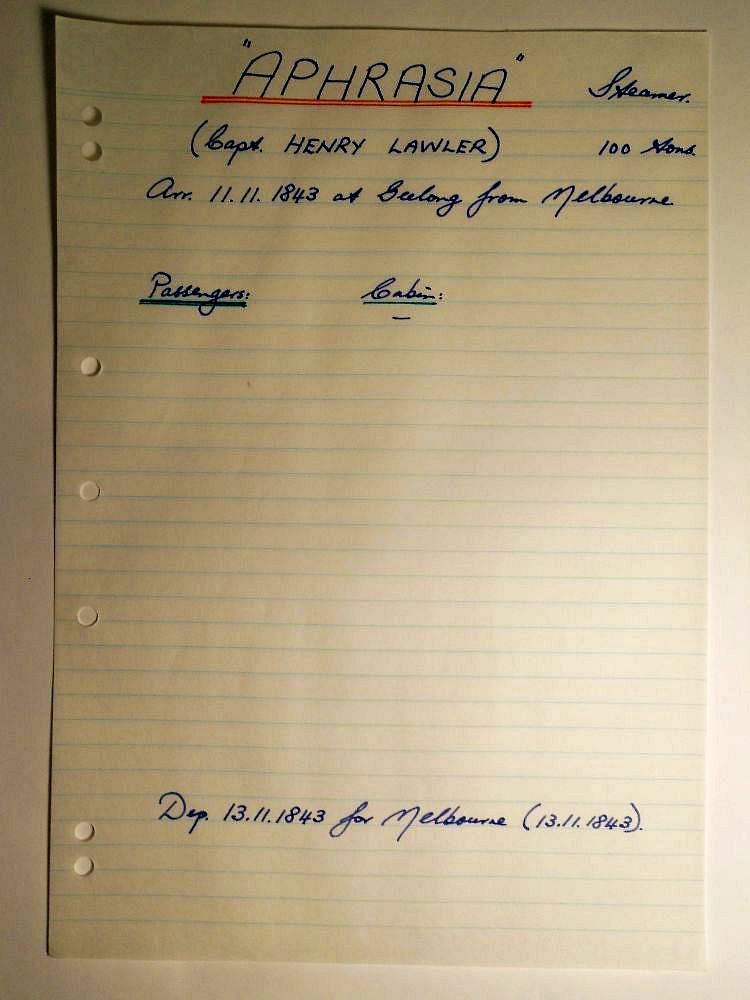 "APHRASIA" Steamer.
(Capt. HENRY LAWLER) 100 tons.
Arr. 11.11.1843 at Geelong from Melbourne
Passengers: Cabin:
—
Dep. 13.11.1843 for Melbourne (13.11.1843).